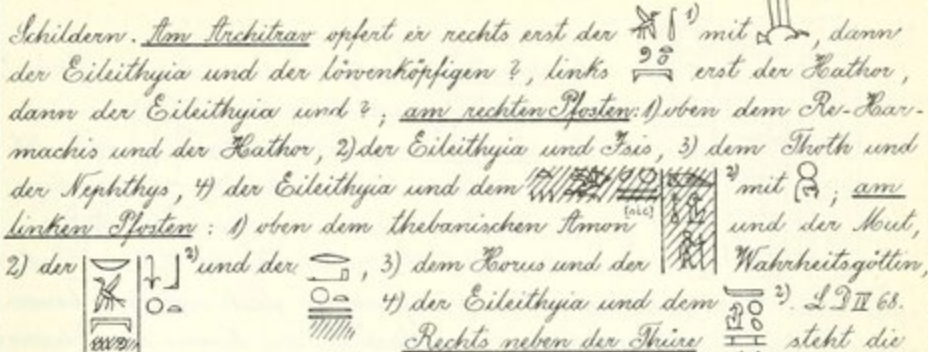 Schildern. Am Architrav opfert er rechts erst der 1) mit , dann
der Eileithyia und der löwenköpfigen ?, links erst der Hathor,
dann der Eileithyia und ? ; am rechten Pfosten: 1) oben dem Re-Har-
machis und der Hathor, 2) der Eileithyia und Isis, 3) dem Thoth und
der Nephthys, 4) der Eileithyia und dem 2) mit ; am
[sic]
linken Pfosten : 1) oben dem thebanischen Amon und der Mut,
2) der 2) und der , 3) dem Horus und der Wahrheitsgöttin,
4) der Eileithyia und dem 2). LD IV 68.
Rechts neben der Thüre steht die